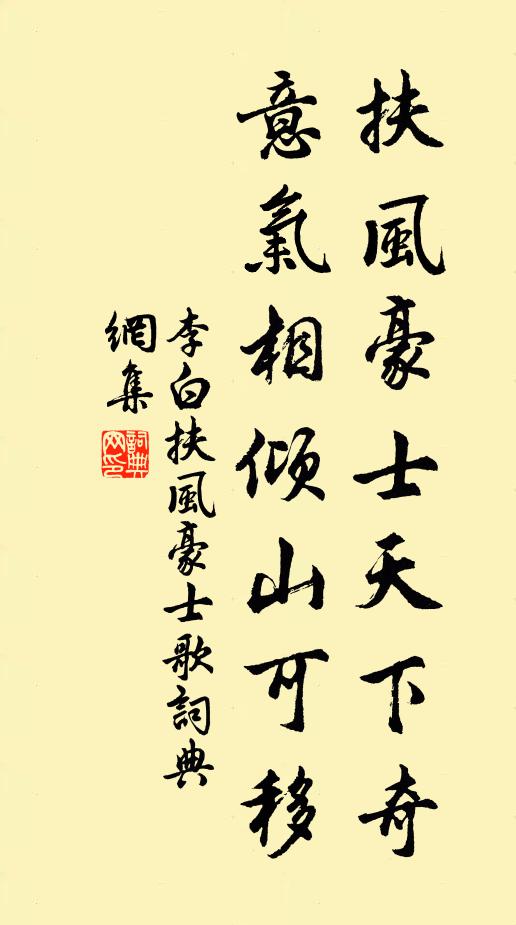 扶風豪士天下奇
意氣相傾山可移
李白扶風豪士歌詞典
網集
詞典網印